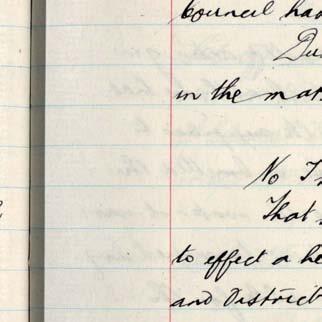 Council had
Du
in the mat
No I
That
to effect a he
and District